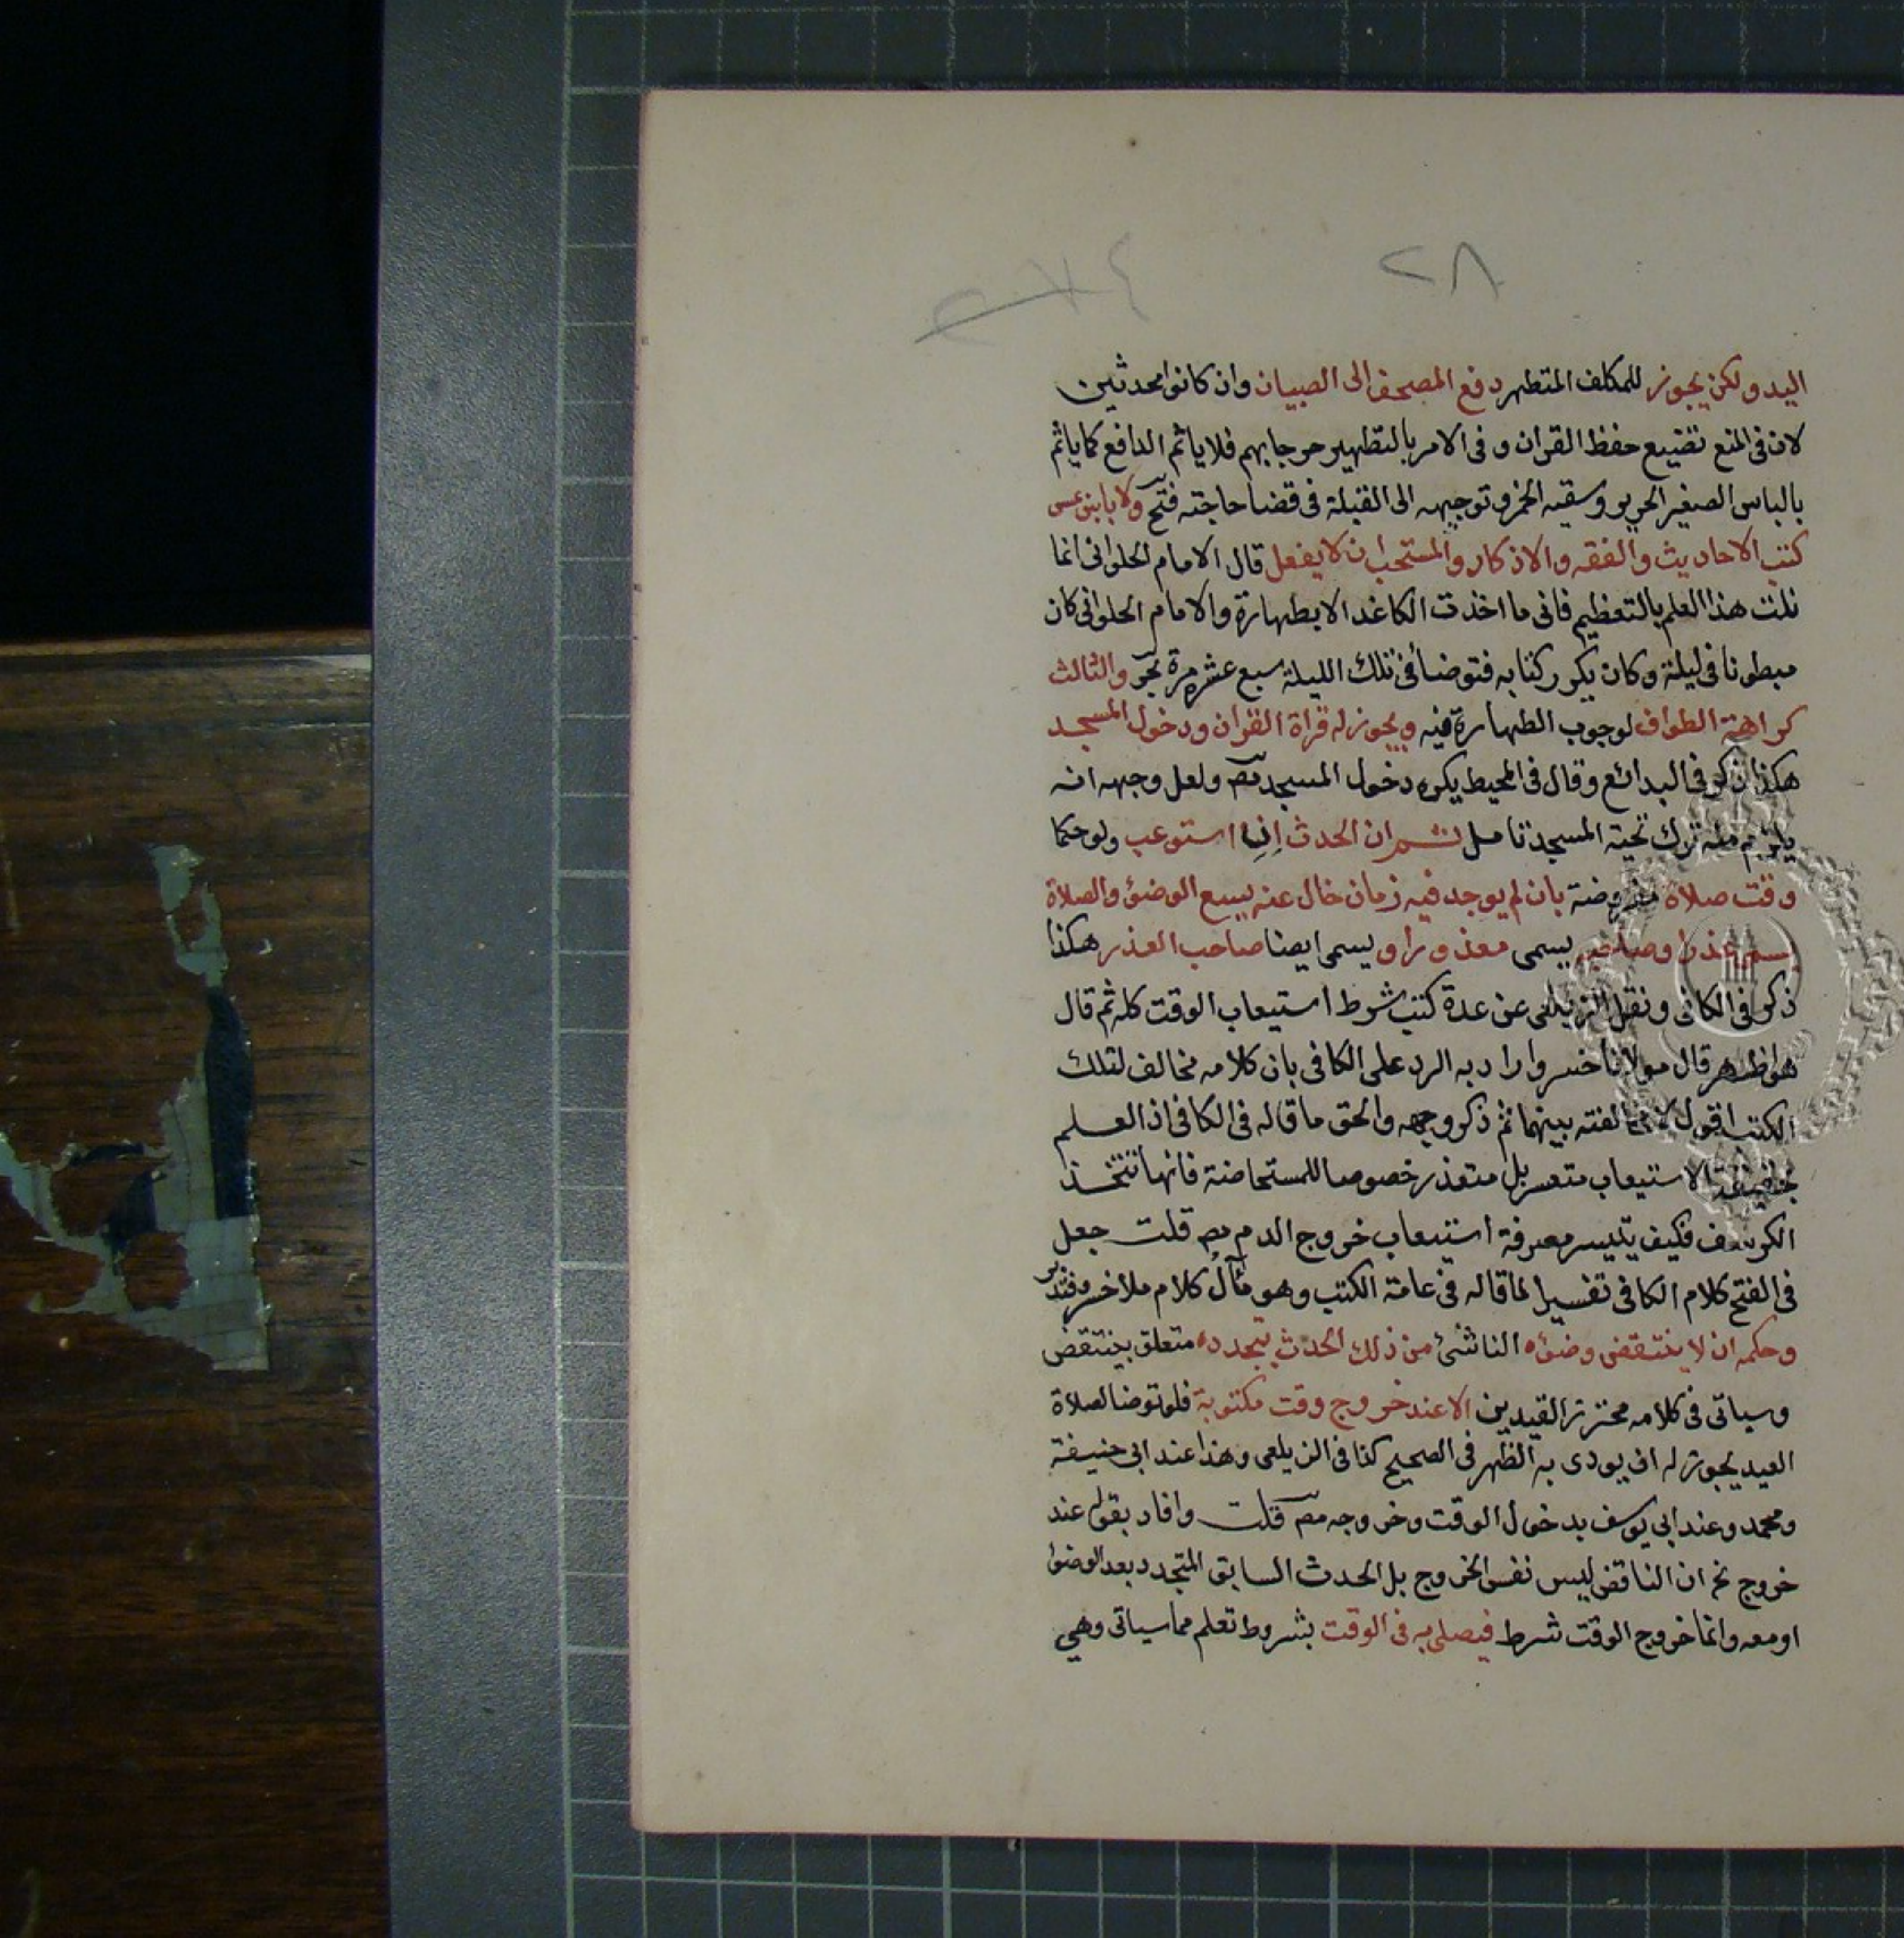 ٢٨
اليد ولكن يجوز للمكلف المتطهر دفع المصحف الى الصبيان وان كانوا محدثين
لان فى المنع تضييع حفظ القران و فى الامر بالتطهير حرجا بهم فلا ياثم الدافع كما ياثم
بالباس الصغير الحرير وسقيه الخمر وتوجيهه الى القبلة فى قضا حاجته فتح ولا باس بمس
كتب الاحاديث والفقه والاذكار والمستحب ان لا يفعل قال الامام الحلوانى انما
نلت هذا العلم بالتعظيم فانى ما اخذت الكاغد الا بطهارة والامام الحلوانى كان
مبطونا فى ليلة وكان يكرر كتابه فتوضأ فى تلك الليلة سبع عشرة مرة بحر والثالث
كراهة الطواف لوجوب الطهارة فيه ويجوز له قراة القران ودخول المسجد
هكذا ذكر فى البدائع وقال فى المحيط يكره دخول المسجد مص ولعل وجهه انه
يلزم منه ترك تحية المسجد تامل ثم ان الحدث ان استوعب ولو حكما
وقت صلاة مفروضة بان لم يوجد فيه زمان خال عنه يسع الوضوء والصلاة
يسمى عذرا وصاحبه يسمى معذورا و يسمى ايضا صاحب العذر هكذا
ذكر فى الكافى ونقل الزيلعى عن عدة كتب شرط استيعاب الوقت كله ثم قال
هو اظهر قال مولانا خسرو اراد به الرد على الكافى بان كلامه مخالف لتلك
الكتب اقول لا مخالفته بينهما ثم ذكر وجهه والحق ما قاله فى الكافى اذ العلم
بحقيقة الاستيعاب متعسر بل متعذر خصوصا للمستحاضة فانها تتخذ
الكرسف فكيف يتيسر معرفة استيعاب خروج الدم مص قلت جعل
فى الفتح كلام الكافى تفسيرا لما قاله فى عامة الكتب وهو مآل كلام ملا خسرو فتدبر
وحكمه ان لا ينتقض وضوءه الناشئ من ذلك الحدث بتجدده متعلق بينتقض
وسياتى فى كلامه محترز القيدين الا عند خروج وقت مكتوبة فلو توضا لصلاة
العيد يجوز له ان يودى به الظهر فى الصحيح كذا فى الزيلعى وهذا عند ابى حنيفة
ومحمد وعند ابى يوسف بدخول الوقت وخروجه مص قلت وافاد بقوله عند
خروج الخ ان الناقض ليس نفس الخروج بل الحدث السابق المتجدد بعد الوضوء
او معه وانما خروج الوقت شرط فيصلى به فى الوقت بشروط تعلم مما سياتى وهى